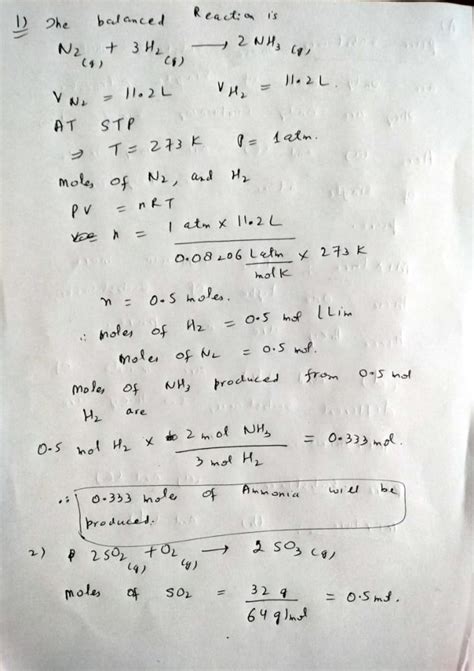 1) The balanced Reaction is
N2(g) + 3H2(g) → 2 NH3(g)
V N2 = 11.2L V H2 = 11.2 L.
AT STP
⇒ T = 273 K P = 1 atm.
moles of N2, and H2
PV = nRT
n = 1 atm × 11.2 L
0.08206 Latm × 273 K
mol K
n = 0.5 moles.
∴ moles of H2 = 0.5 mol (Lim
moles of N2 = 0.5 mol.
Moles of NH3 produced from 0.5 mol
H2 are
0.5 mol H2 × 2 mol NH3 = 0.333 mol.
3 mol H2
∴ 0.333 moles of Ammonia will be
produced.
2) 2SO2(g) + O2(g) → 2 SO3(g)
moles of SO2 = 32 g = 0.5 mol.
64 g/mol